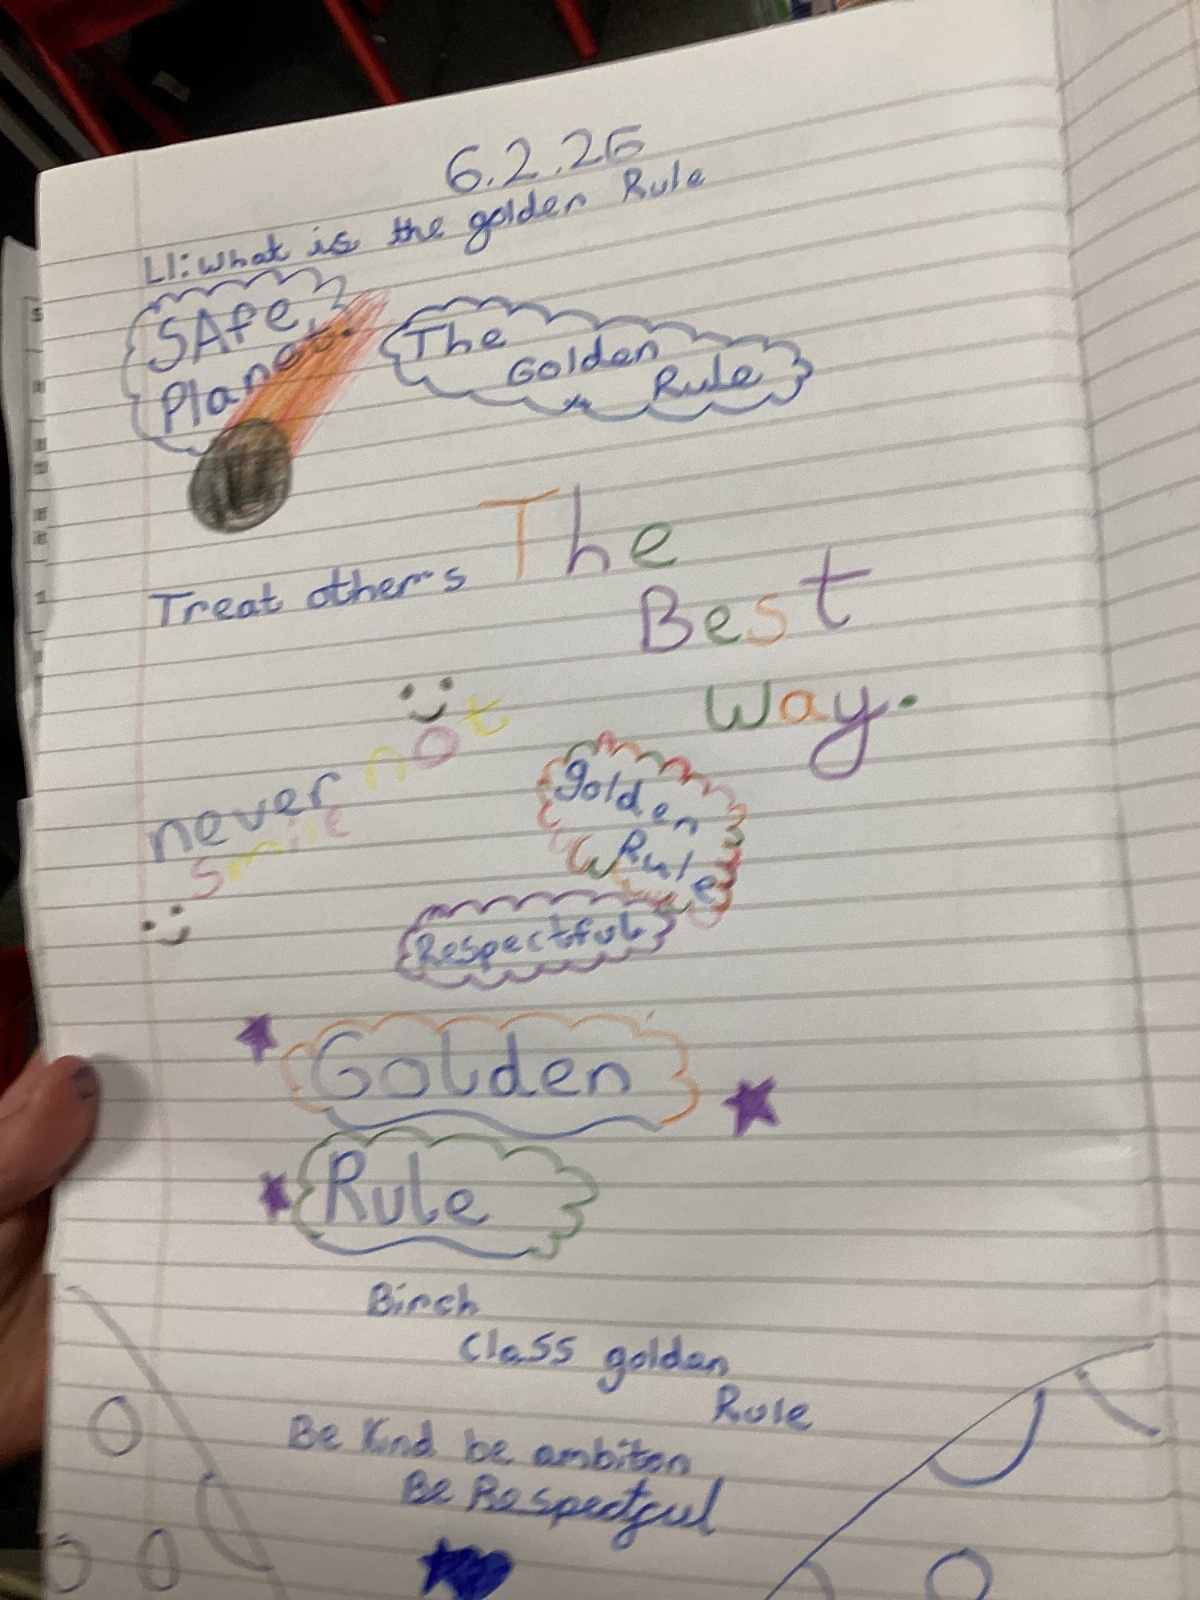 6.2.26
LI: What is the golden Rule
SAfe
Planet.
The
Golden
Rule
Treat others The
Best
way.
never not
smile
golden
Rule
Respectful
Golden
Rule
Birch
Class golden
Rule
Be Kind be ambiton
Be Respectful